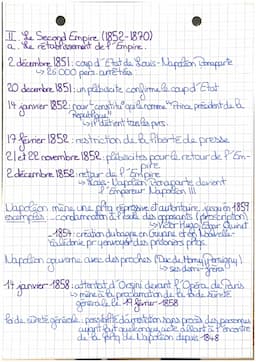 II Le Second Empire (1852-1870)
a. Le rétablissement de l'Empire.
2 décembre 1851 : coup d'Etat de Louis-Napoléon Bonaparte
↳ 26 000 pers. arrêtées
20 décembre 1851 : un plébiscite confirme le coup d'Etat
14 janvier 1852 : pour "constitu° qui le nomme "Prince président de la
République"
↳ il détient tous les pvrs.
17 février 1852 : restriction de la liberté de presse
21 et 22 novembre 1852 : plébiscites pour le retour de l'Em-
pire
2 décembre 1852 : retour de l'Empire
↳ Louis-Napoléon Bonaparte devient
l'Empereur Napoléon III
Napoléon mène une pltq répressive et autoritaire jusqu'en 1857
exemples : - condamnation à l'exil des opposants (proscription)
↳ Victor Hugo, Edgar Quinet
- 1854 : création du bagne en Guyane et en Nouvelle-
Calédonie pr y envoyer des prisonniers pltqs.
Napoléon gouverne avec des proches (Duc de Morny, Persigny)
↳ ses dem-frère
14 janvier 1858 : attentat d'Orsini devant l'Opéra de Paris
→ mène à la promulgation de la loi de sûreté
générale le 19 février 1858
loi de sûreté générale : possibilité d'arrestation sans procès des personnes
ayant fait quelconque acte allant à l'encontre
de la pltq de Napoléon depuis 1848